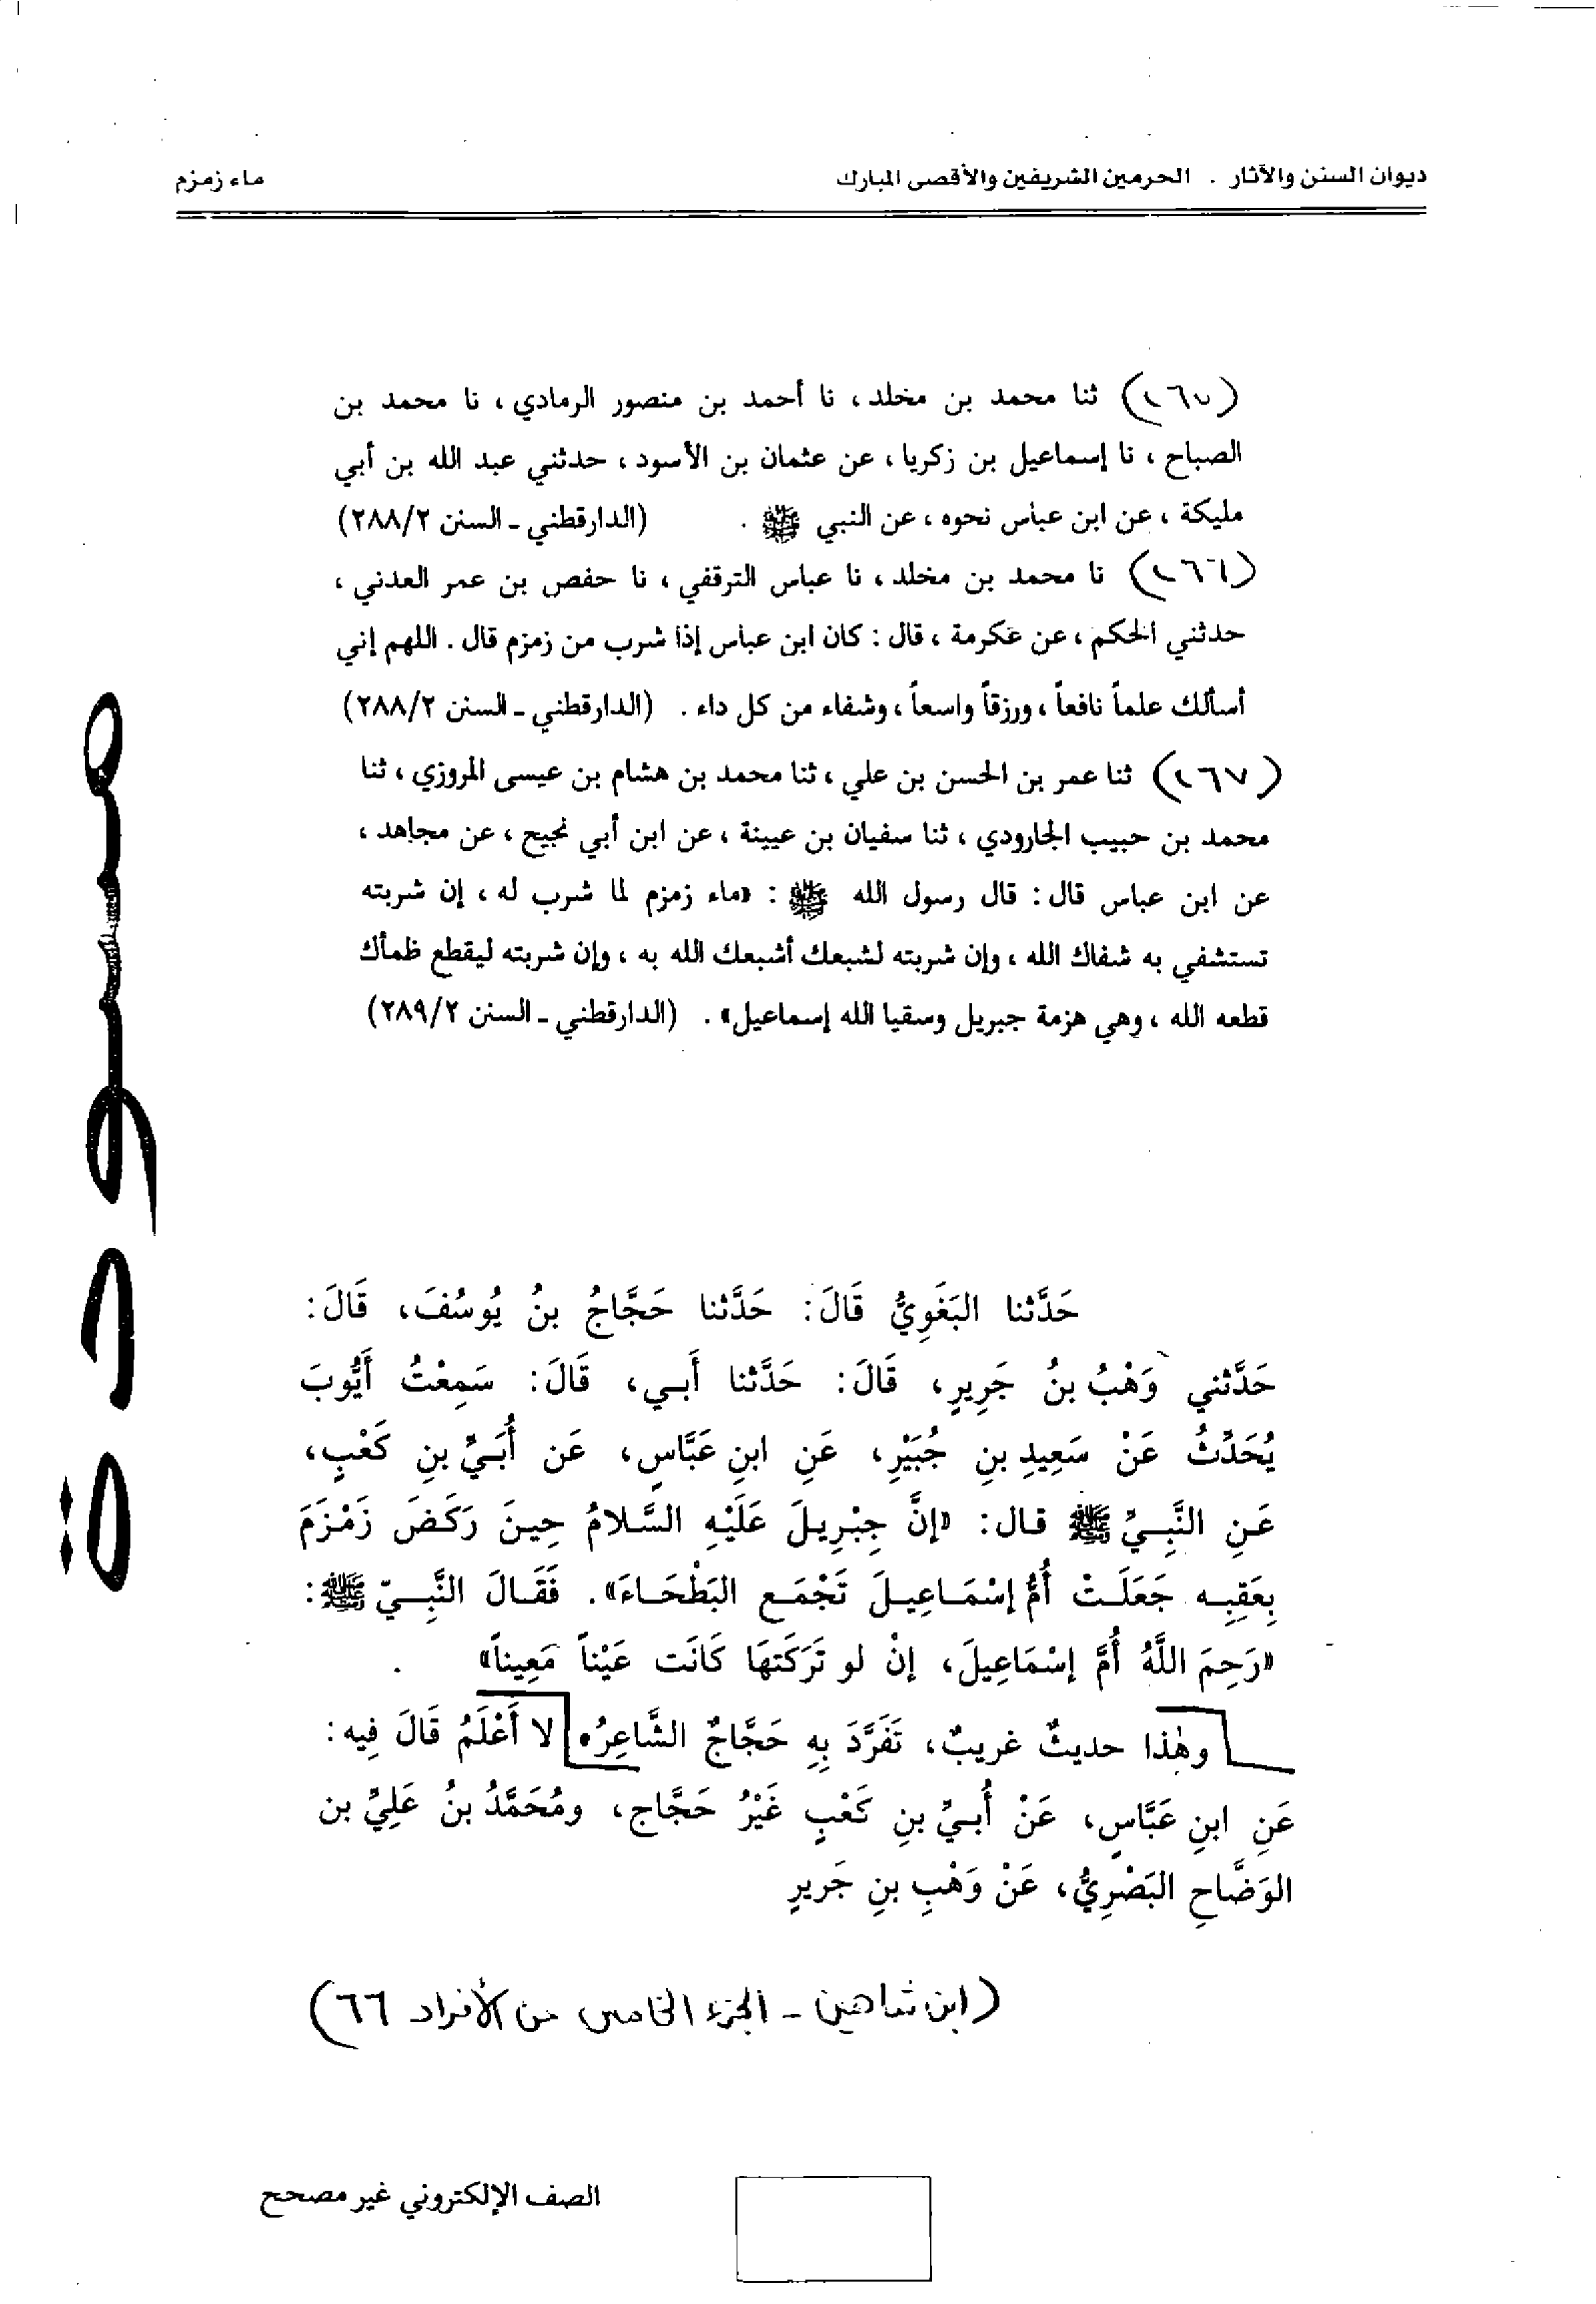 ديوان السنن والآثار . الحرمين الشريفين والأقصى المبارك ماء زمزم
ثنا محمد بن مخلد ، نا أحمد بن منصور الرمادي ، نا محمد بن
الصباح ، نا إسماعيل بن زكريا ، عن عثمان بن الأسود ، حدثني عبد الله بن أبي
مليكة ، عن ابن عباس نحوه ، عن النبي ﷺ . (الدارقطني - السنن ٢٨٨/٢)
(٢٦٦) نا محمد بن مخلد ، نا عباس الترقفي ، نا حفص بن عمر العدني ،
حدثني الحكم ، عن عكرمة ، قال : كان ابن عباس إذا شرب من زمزم قال . اللهم إني
أسألك علماً نافعاً ، ورزقاً واسعاً ، وشفاء من كل داء . (الدارقطني - السنن ٢٨٨/٢)
(٢٦٧) ثنا عمر بن الحسن بن علي ، ثنا محمد بن هشام بن عيسى المروزي ، ثنا
محمد بن حبيب الجارودي ، ثنا سفيان بن عيينة ، عن ابن أبي نجيح ، عن مجاهد ،
عن ابن عباس قال : قال رسول الله ﷺ : «ماء زمزم لما شرب له ، إن شربته
تستشفي به شفاك الله ، وإن شربته لشبعك أشبعك الله به ، وإن شربته ليقطع ظمأك
قطعه الله ، وهي هزمة جبريل وسقيا الله إسماعيل» . (الدارقطني - السنن ٢٨٩/٢)
مسودة
حَدَّثنا البَغَوِيُّ قَالَ: حَدَّثنا حَجَّاجُ بنُ يُوسُفَ، قَالَ:
حَدَّثني وَهْبُ بنُ جَرِيرٍ، قَالَ: حَدَّثنا أَبـي، قَالَ: سَمِعْتُ أَيُّوبَ
يُحَدِّثُ عَنْ سَعِيدِ بنِ جُبَيْرٍ، عَنِ ابنِ عَبَّاسٍ، عَن أُبَـيِّ بنِ كَعْبٍ،
عَنِ النَّبِـيِّ ﷺ قال: «إنَّ جِبْرِيلَ عَلَيْهِ السَّلامُ حِينَ رَكَضَ زَمْزَمَ
بِعَقِبِه جَعَلَتْ أُمُّ إسْمَاعِيلَ تَجْمَع البَطْحَاءَ». فَقَالَ النَّبِـيّ ﷺ:
«رَحِمَ اللَّهُ أُمَّ إسْمَاعِيلَ، إنْ لو تَرَكَتهَا كَانَت عَيْناً مَعِيناً» .
وهٰذا حديثٌ غريبٌ، تَفَرَّدَ بِهِ حَجَّاجٌ الشَّاعِرُ، لا أَعْلَمُ قَالَ فِيه:
عَنِ ابنِ عَبَّاسٍ، عَنْ أُبـيِّ بنِ كَعْبٍ غَيْرُ حَجَّاج، ومُحَمَّدُ بنُ عَلِيِّ بن
الوَضَّاحِ البَصْرِيُّ، عَنْ وَهْبِ بنِ جَريرٍ
(ابن شاهين - الجزء الخامس من الأفراد ٦٦)
الصف الإلكتروني غير مصحح